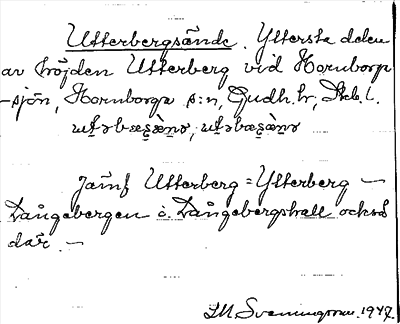 Utterbergsände. Yttersta delen
av höjden Utterberg vid Hornborga
-sjön, Hornborga s:n, Gudh. hr, Skb. l.
Jämf Utterberg = Ytterberg —
Dångebergen o. Dångebergshall också
där. —
SM. Sveningsson. 1947.